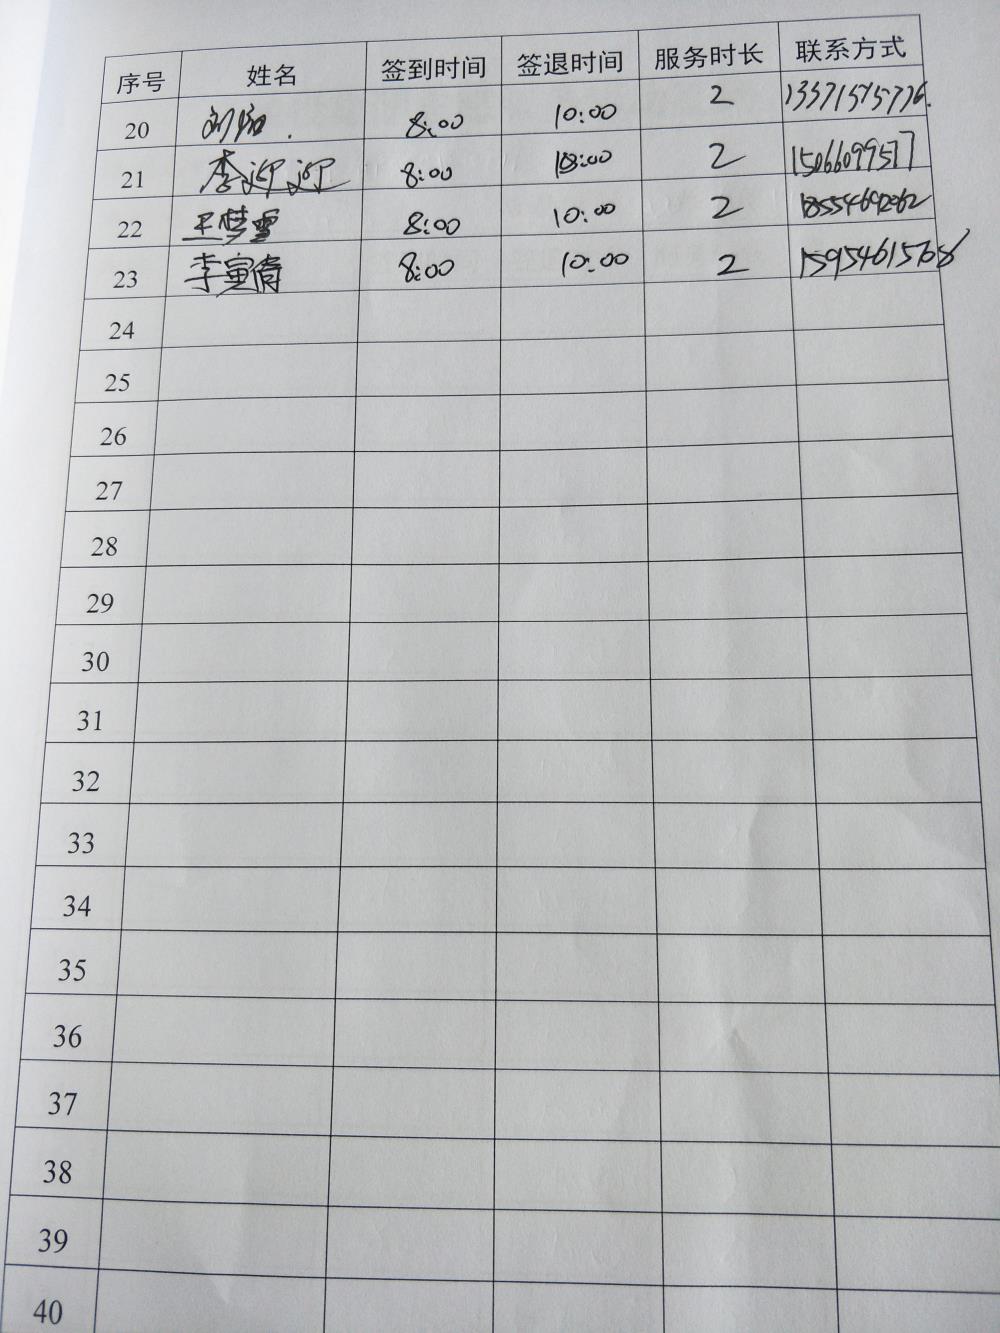 序号 姓名 签到时间 签退时间 服务时长 联系方式
20 刘 8:00 10:00 2 13371575776.
21 李迎迎 8:00 10:00 2 15066099577
22 王梦雪 8:00 10:00 2
23 李寅倩 8:00 10:00 2 15954615768
24
25
26
27
28
29
30
31
32
33
34
35
36
37
38
39
40